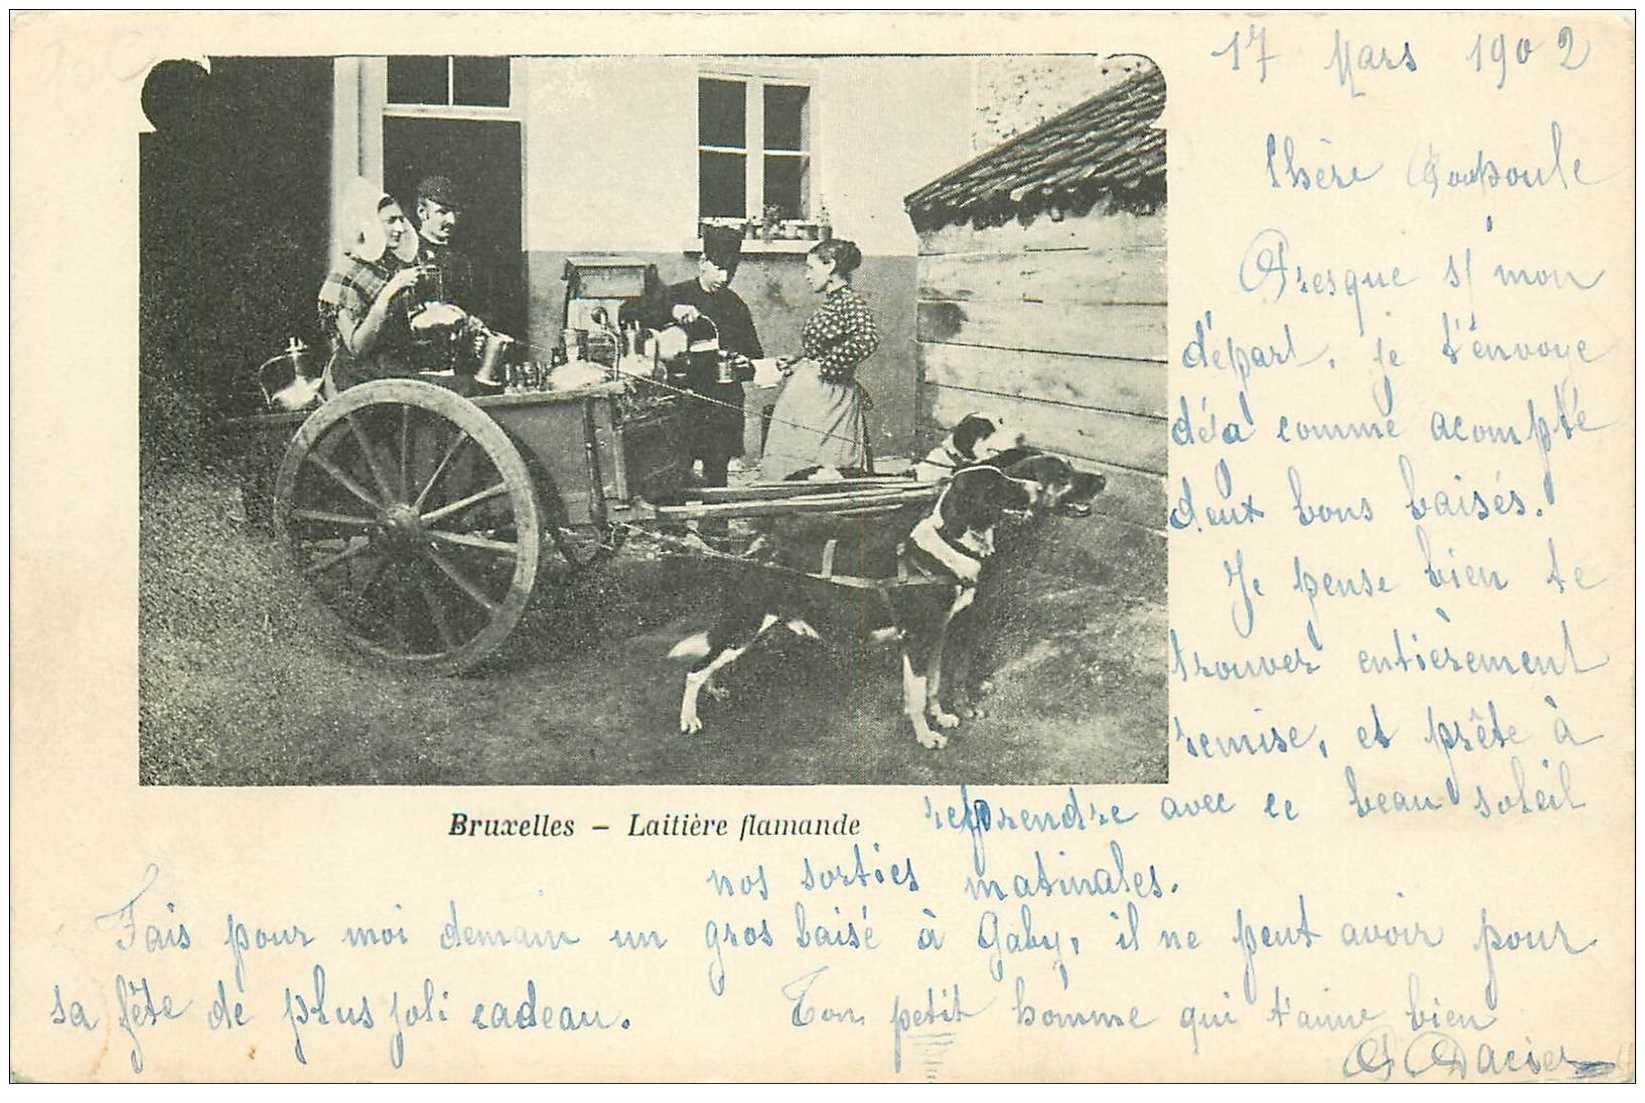 17 Mars 1902
Chère Poupoule
Presque s/ mon
départ, je t'envoye
déjà comme acompte
deux bons baisés.
Je pense bien te
trouver entièrement
remise, et prête à
reprendre avec ce beau soleil
nos sorties matinales.
Bruxelles – Laitière flamande
Fais pour moi demain un gros baisé à Gaby, il ne peut avoir pour
sa fête de plus joli cadeau. Ton petit homme qui t'aime bien
Dacier